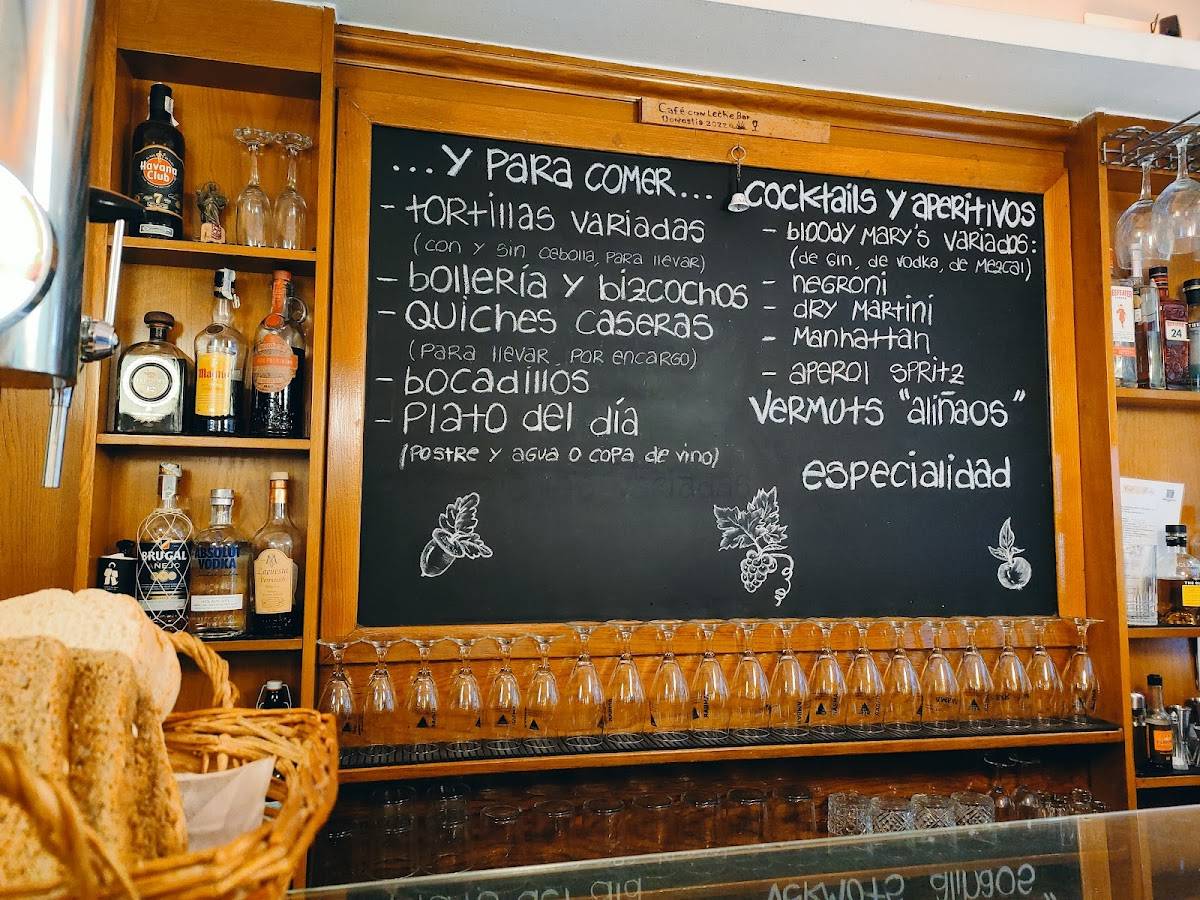 Café con Leche Bar
Donostia 2022
... Y PARA COMER ...
- TORTILLAS VARIADAS
(CON Y SIN CEBOLLA, PARA LLEVAR)
- BOLLERÍA Y BIZCOCHOS
- QUICHES CASERAS
(PARA LLEVAR, POR ENCARGO)
- BOCADILLOS
- PLATO DEL DÍA
(POSTRE Y AGUA O COPA DE VINO)
COCKTAILS Y APERITIVOS
- BLOODY MARY'S VARIADOS:
(DE GIN, DE VODKA, DE MEZCAL)
- NEGRONI
- DRY MARTINI
- MANHATTAN
- APEROL SPRITZ
VERMUTS "ALIÑAOS"
ESPECIALIDAD
Havana
Club
7
BRUGAL
AÑEJO
ABSOLUT
VODKA
BEEFEATER
24